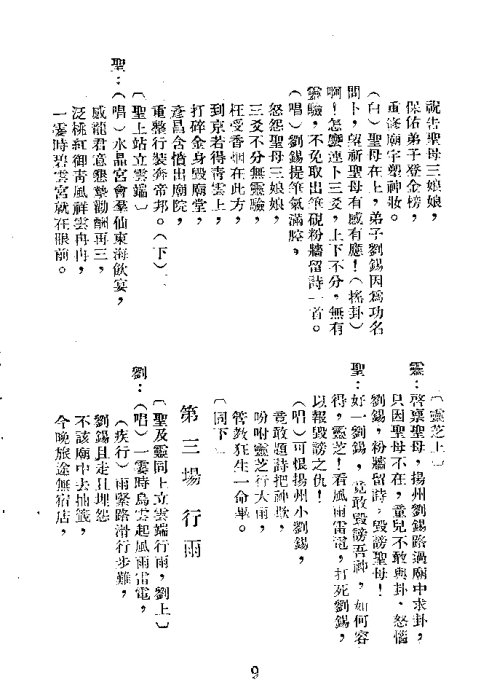 祝告聖母三娘娘，
保佑弟子登金榜，
重修廟宇塑神妝。
（白）聖母在上，弟子劉錫因爲功名
問卜，望祈聖母有感有應！（搖卦）
啊！怎麼連卜三爻，上下不分，無有
靈驗，不免取出筆硯粉牆留詩一首。
（唱）劉錫提筆氣滿腔，
怒怨聖母三娘娘，
三爻不分無靈驗，
枉受香烟在此方，
到京若得青雲上，
打碎金身毀廟堂，
彥昌含憤出廟院，
重整行裝奔帝邦。（下）
〔聖上站立雲端〕
聖：（唱）水晶宮會羣仙東海飲宴，
感龍君意懇摯勸酬再三，
泛桃紅御青風祥雲冉冉，
一霎時碧雲宮就在眼前。
〔靈芝上〕
靈：啓稟聖母，揚州劉錫路過廟中求卦，
只因聖母不在，童兒不敢與卦，怒惱
劉錫，粉牆留詩，毀謗聖母！
聖：好一劉錫，竟敢毀謗吾神，如何容
得，靈芝！看風雨雷電，打死劉錫，
以報毀謗之仇！
（唱）可恨揚州小劉錫，
竟敢題詩把神欺，
吩咐靈芝行大雨，
管敎狂生一命畢。
〔同下〕
第三場　行雨
〔聖及靈同上立雲端行雨，劉上〕
劉：（唱）一霎時烏雲起風雨雷電，
（疾行）雨緊路滑行步難，
劉錫且走且埋怨
不該廟中去抽籤，
今晚旅途無宿店，
9